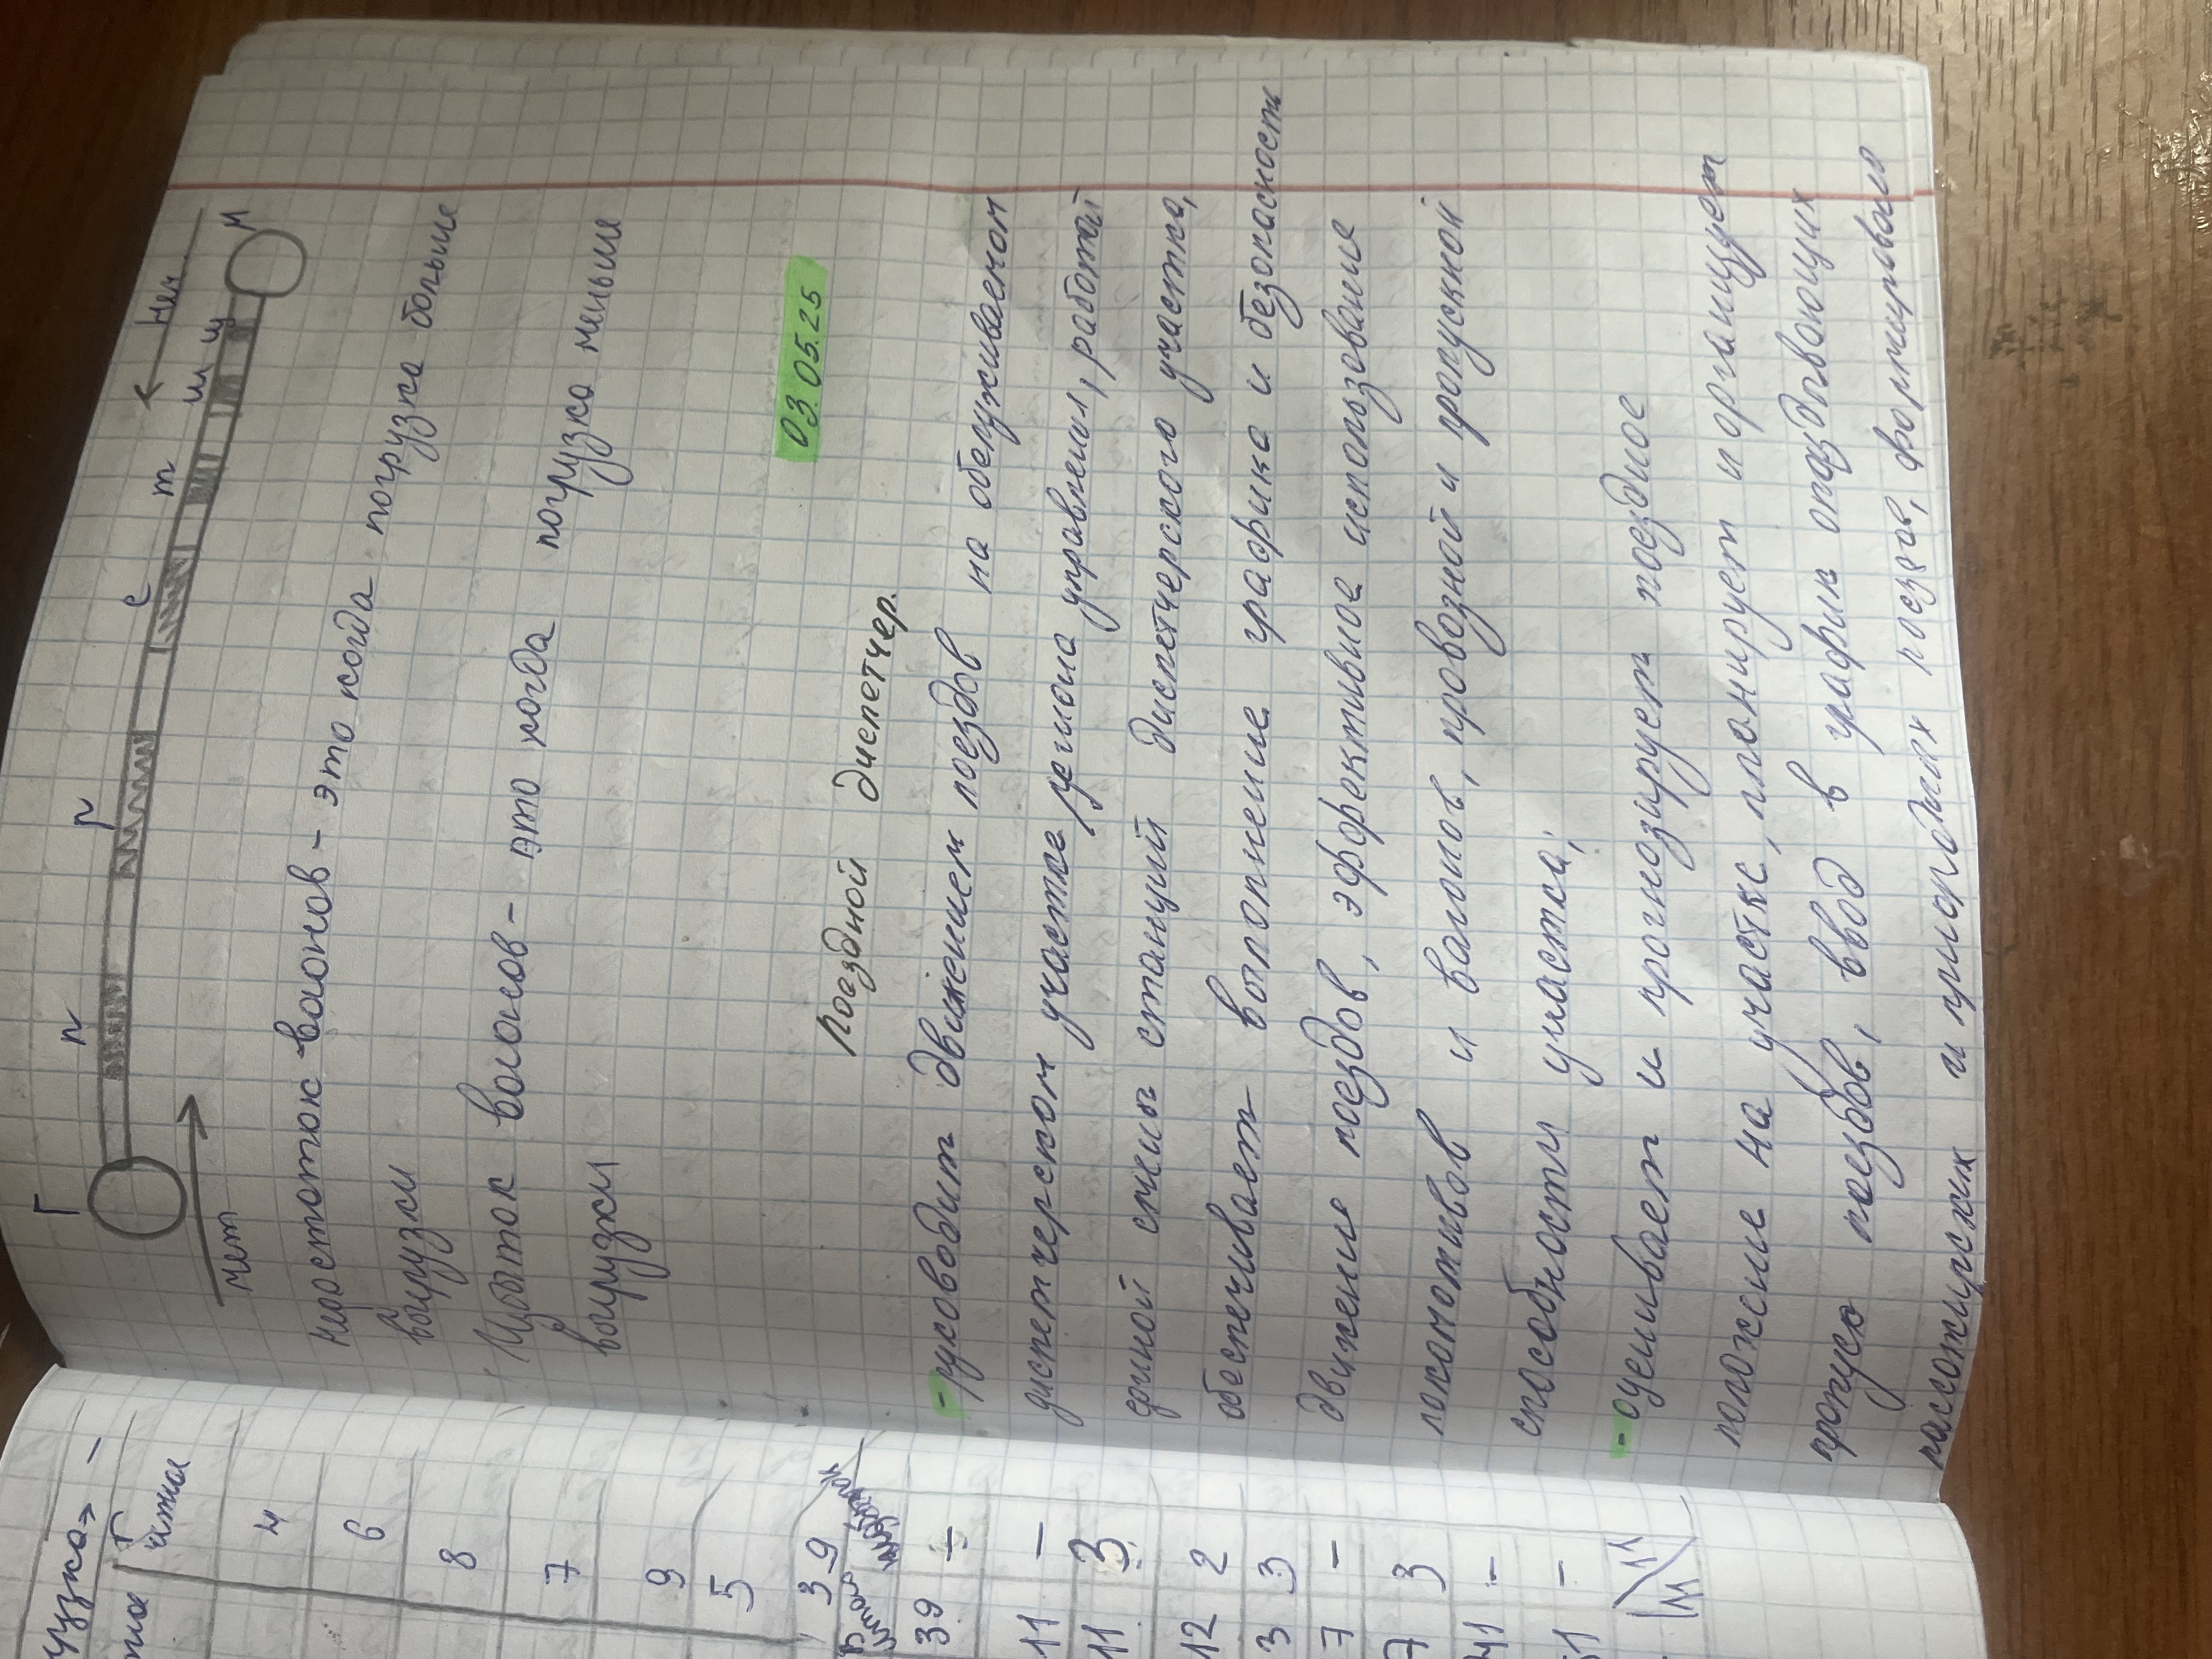 Г п р с т ш щ М
чет
неч
недостаток вагонов - это когда погрузка больше
выгрузки
Избыток вагонов - это когда погрузка меньше
выгрузки
03.05.25
Поездной диспетчер.
- руководит движением поездов на обслуживаемом
диспетчерском участке региона управления, работой
единой смены станций диспетчерского участка,
обеспечивает выполнение графика и безопасность
движение поездов, эффективное использование
локомотивов и вагонов, провозной и пропускной
способности участка;
- оценивает и прогнозирует поездное
положение на участке, планирует и организует
пропуск поездов, ввод в график опаздывающих
пассажирских и пригородных поездов,
4
6
8
7
9
5
39
39 -
11 -
11 3
12 2
3 3
7 -
7 3